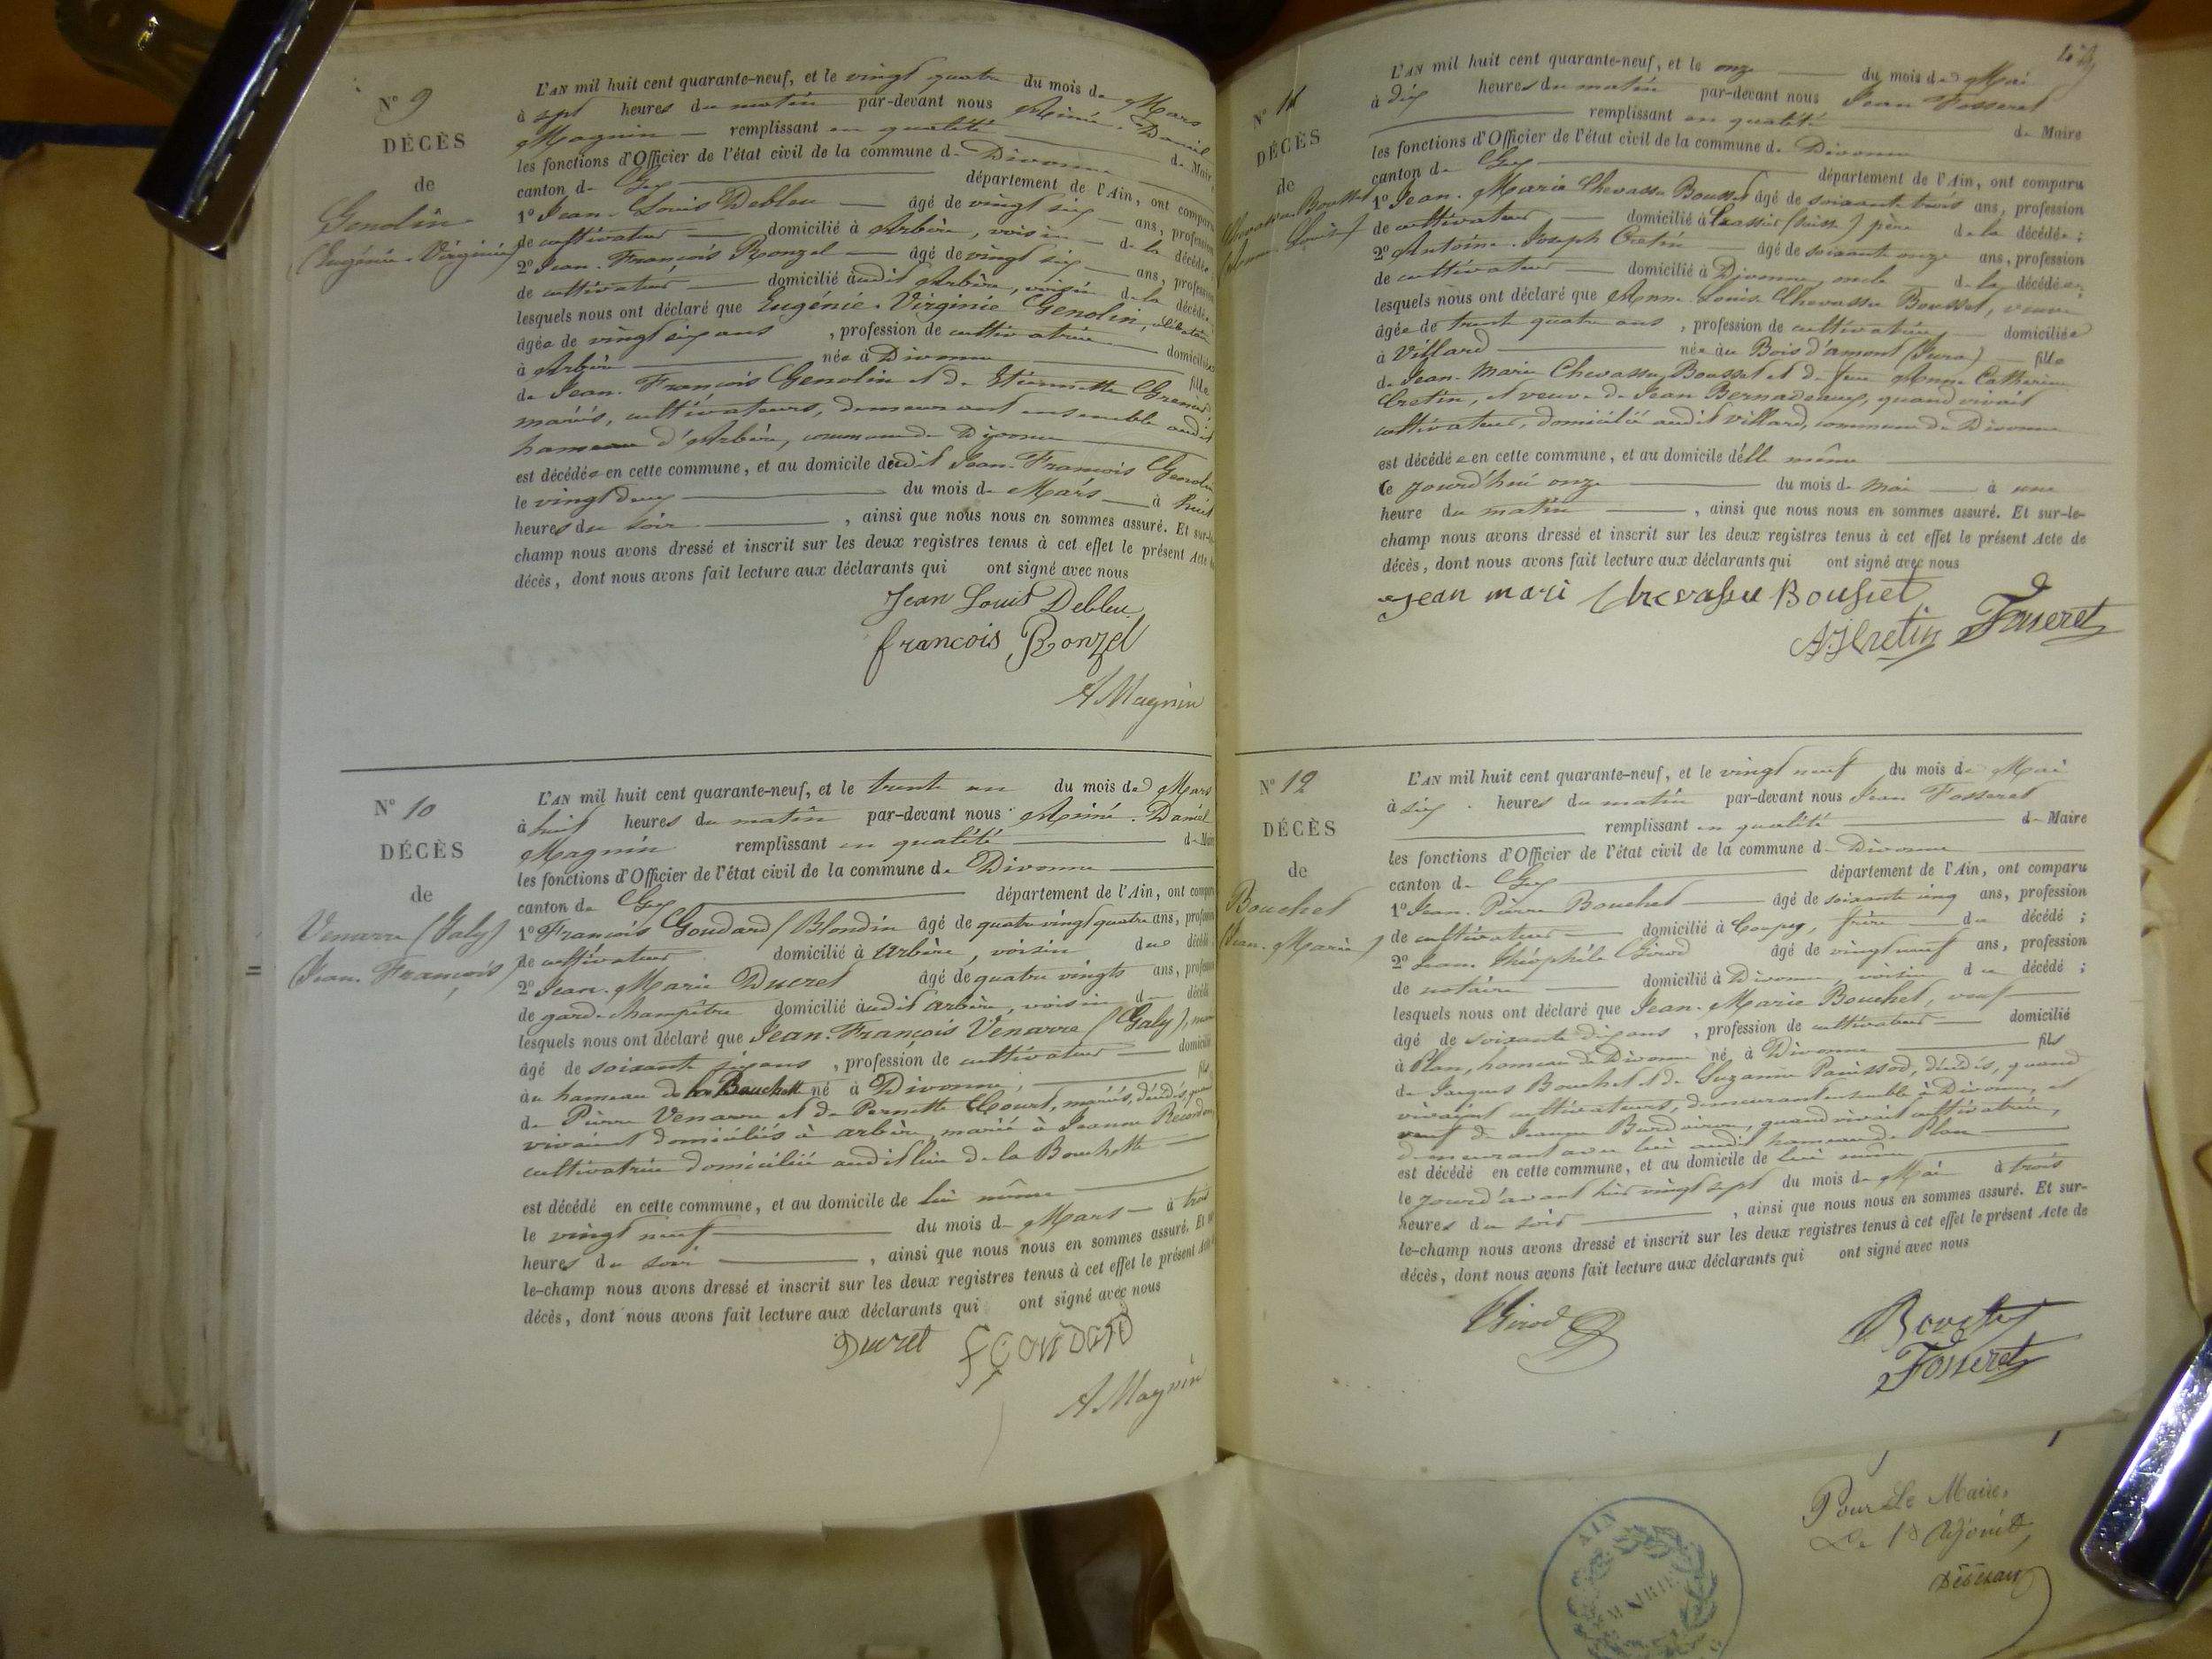 N° 9
DÉCÈS
de
Genolin
(Eugénie-Virginie)
L'AN mil huit cent quarante-neuf, et le vingt quatre du mois de Mars
à sept heures du matin par-devant nous Aimé-Daniel
Magnin remplissant en qualité de Maire
les fonctions d'Officier de l'état civil de la commune de Divonne
canton de Gex département de l'Ain, ont comparu
1° Jean-Louis Debleu âgé de vingt six ans, profession
de cultivateur domicilié à Arbère, voisin de la décédée
2° Jean-François Ronzel âgé de vingt six ans, profession
de cultivateur domicilié audit Arbère, voisin de la décédée
lesquels nous ont déclaré que Eugénie-Virginie Genolin, célibataire
âgée de vingt six ans, profession de cultivatrice domiciliée
à Arbère née à Divonne fille
de Jean-François Genolin et de Etiennette Grenier
mariés, cultivateurs, demeurant ensemble audit
hameau d'Arbère, commune de Divonne
est décédée en cette commune, et au domicile dudit Jean-François Genolin
le vingt deux du mois de Mars à huit
heures du soir, ainsi que nous nous en sommes assuré. Et sur-le-
champ nous avons dressé et inscrit sur les deux registres tenus à cet effet le présent Acte de
décès, dont nous avons fait lecture aux déclarants qui ont signé avec nous
Jean Louis Debleu
francois Ronzel
A Magnin
N° 10
DÉCÈS
de
Venarre (Galy)
(Jean-François)
L'AN mil huit cent quarante-neuf, et le trente un du mois de Mars
à huit heures du matin par-devant nous Aimé-Daniel
Magnin remplissant en qualité de Maire
les fonctions d'Officier de l'état civil de la commune de Divonne
canton de Gex département de l'Ain, ont comparu
1° François Goudard (Blondin âgé de quatre vingt quatre ans, profession
de cultivateur domicilié à Arbère, voisin du décédé
2° Jean-Marie Ducret âgé de quatre vingts ans, profession
de garde-champêtre domicilié audit arbère, voisin du décédé
lesquels nous ont déclaré que Jean-François Venarre (Galy),
âgé de soixante six ans, profession de cultivateur domicilié
au hameau de la Bouchette né à Divonne, fils
de Pierre Venarre et de Pernette Court, mariés, décédés, quand
vivaient domiciliés à arbère, marié à Jeanne Recordon
cultivatrice domiciliée audit lieu de la Bouchette
est décédé en cette commune, et au domicile de lui même
le vingt neuf du mois de Mars à trois
heures du soir, ainsi que nous nous en sommes assuré. Et sur-
le-champ nous avons dressé et inscrit sur les deux registres tenus à cet effet le présent Acte de
décès, dont nous avons fait lecture aux déclarants qui ont signé avec nous
Ducret fGOUDARD
A. Magnin
N° 11
DÉCÈS
de
Chevassu Bousset
(Anne-Louise)
L'AN mil huit cent quarante-neuf, et le onze du mois de Mai
à dix heures du matin par-devant nous Jean Fosseret
remplissant en qualité de Maire
les fonctions d'Officier de l'état civil de la commune de Divonne
canton de Gex département de l'Ain, ont comparu
1° Jean-Marie Chevassu Bousset âgé de soixante trois ans, profession
de cultivateur domicilié à Crassier (Suisse) père de la décédée;
2° Antoine-Joseph Cretin âgé de soixante onze ans, profession
de cultivateur domicilié à Divonne, oncle de la décédée;
lesquels nous ont déclaré que Anne-Louise Chevassu Bousset, veuve
âgée de trente quatre ans, profession de cultivatrice domiciliée
à Villard née au Bois d'amont (Jura) fille
de Jean-Marie Chevassu Bousset et de feue Anne Catherine
Cretin, et veuve de Jean Bernadeaux, quand vivait
cultivateur, domicilié audit villard, commune de Divonne
est décédée en cette commune, et au domicile d'elle même
le jourd'hui onze du mois de Mai à une
heure du matin, ainsi que nous nous en sommes assuré. Et sur-le-
champ nous avons dressé et inscrit sur les deux registres tenus à cet effet le présent Acte de
décès, dont nous avons fait lecture aux déclarants qui ont signé avec nous
Jean mari Chevassu Bousset
A.J. Cretin Fosseret
N° 12
DÉCÈS
de
Bouchet
(Jean-Marie)
L'AN mil huit cent quarante-neuf, et le vingt neuf du mois de Mai
à six heures du matin par-devant nous Jean Fosseret
remplissant en qualité de Maire
les fonctions d'Officier de l'état civil de la commune de Divonne
canton de Gex département de l'Ain, ont comparu
1° Jean-Pierre Bouchet âgé de soixante cinq ans, profession
de cultivateur domicilié à Coupy, frère du décédé;
2° Jean Théophile Girod âgé de vingt neuf ans, profession
de notaire domicilié à Divonne, voisin du décédé;
lesquels nous ont déclaré que Jean-Marie Bouchet, veuf
âgé de soixante dix ans, profession de cultivateur domicilié
à Plan, hameau de Divonne né à Divonne fils
de Jacques Bouchet et de Suzanne Panissod, décédés, quand
vivaient cultivateurs, demeurant ensemble à Divonne, et
veuf de Jeanne Burdairon, quand vivait cultivatrice,
demeurant avec lui audit hameau de Plan
est décédé en cette commune, et au domicile de lui même
le jourd'avant hier vingt sept du mois de Mai à trois
heures du soir, ainsi que nous nous en sommes assuré. Et sur-
le-champ nous avons dressé et inscrit sur les deux registres tenus à cet effet le présent Acte de
décès, dont nous avons fait lecture aux déclarants qui ont signé avec nous
Girod Bouchet
Fosseret
Pour Le Maire,
Le 1er Adjoint,
AIN
MAIRIE